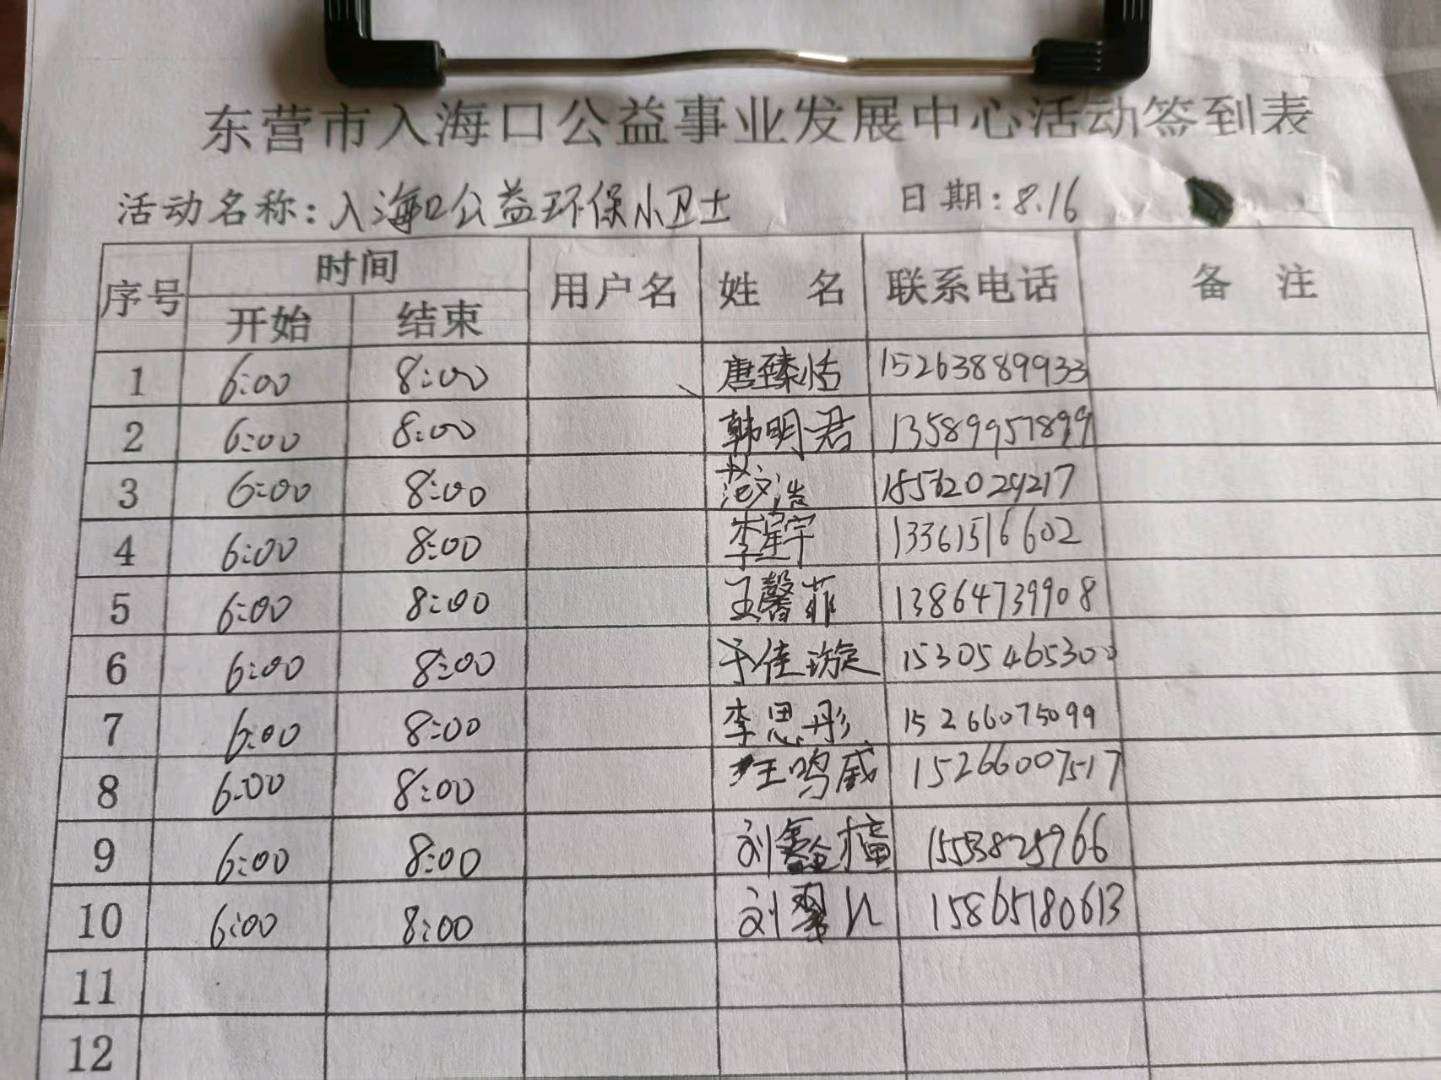 东营市入海口公益事业发展中心活动签到表
活动名称：入海口公益环保小卫士 日期：8.16
序号 时间 用户名 姓 名 联系电话 备 注
开始 结束
1 6:00 8:00 唐臻恬 15263889933
2 6:00 8:00 韩明君 13589957899
3 6:00 8:00
4 6:00 8:00 李星宇 13361516602
5 6:00 8:00 王馨菲 13864739908
6 6:00 8:00 于佳璇 15305465300
7 6:00 8:00 李思彤 15266075099
8 6:00 8:00 王鸣威 15266007517
9 6:00 8:00 刘鑫檀
10 6:00 8:00 刘 15865180613
11
12